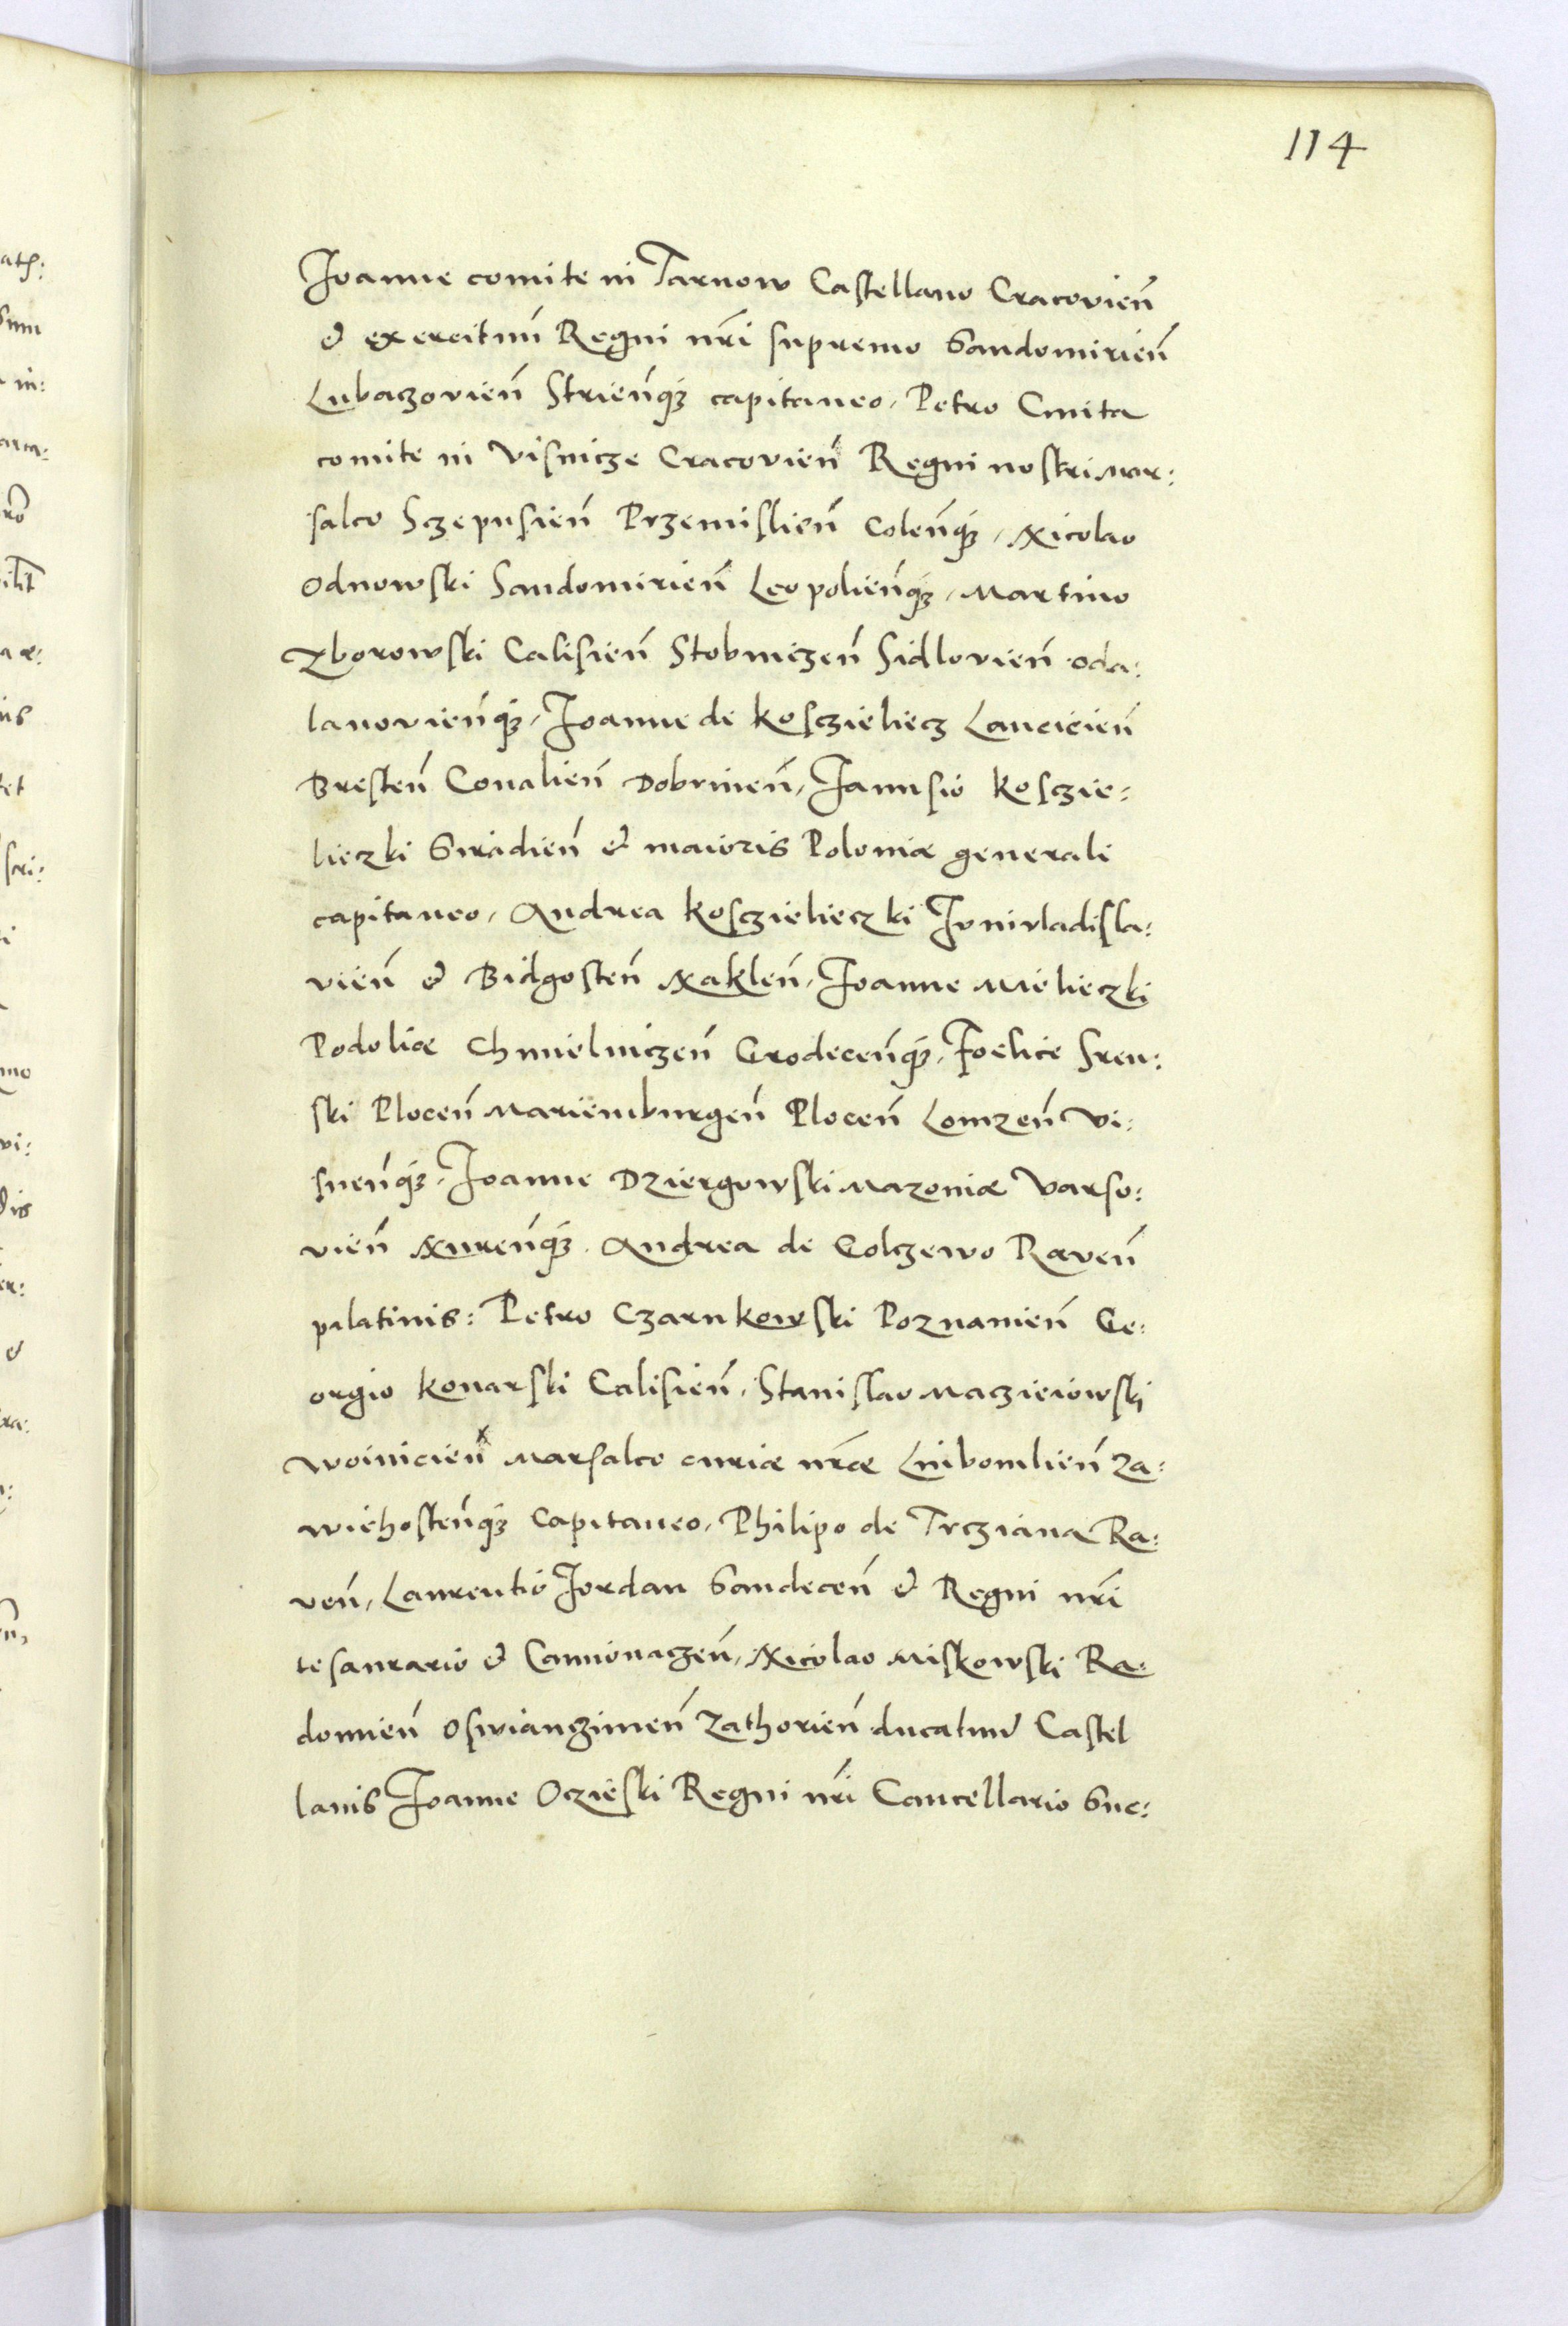 114
Joanne comite in Tarnow Castellano Cracovieñ
& exercituum Regni nr̃i supremo Sandomirieñ
Lubaczovieñ Strieñq; capitaneo, Petro Cmita
comite in Visnicze Cracovieñ Regni nostri mar:
salco Sczepusieñ Przemislieñ Coleñq;, Nicolao
Odnowski Sandomirieñ Leopolieñq;, Martino
Zborowski Calisieñ Stobniczeñ Sidlovieñ oda:
lanovieñq;, Joanne de Kosczieliecz Lancicieñ
Bresteñ Conalieñ Dobrineñ, Janusio Kosczie:
lieczki Siradieñ & maioris Poloniæ generali
capitaneo, Andrea Kosczielieczki Junivladisla:
vieñ & Bidgosteñ Nakleñ, Joanne Mielieczki
Podoliæ Chmielniczeñ Grodeceñq;, Foelice Sren:
ski Ploceñ Mariemburgeñ Ploceñ Lomzeñ Vi:
sneñq;, Joanne Dziergowski Mazoniæ Varso:
vieñ Nureñq;. Andrea de Golczewo Raveñ
palatinis: Petro Czarnkowski Poznanieñ Ge:
orgio Konarski Calisieñ, Stanislao Maczieiowski
Woinicieñ Marsalco curiæ nr̃æ Luibomlieñ Za:
wiehosteñq; Capitaneo, Philipo de Trcziana Ra:
veñ, Laurentio Jordan Sandeceñ & Regni nr̃i
tesaurario & Camionaczeñ, Nicolao Miskowski Ra:
domieñ Oswianczimeñ Zathorieñ ducatuum Castel
lanis Joanne Oczieski Regni nr̃i Cancellario Suc: